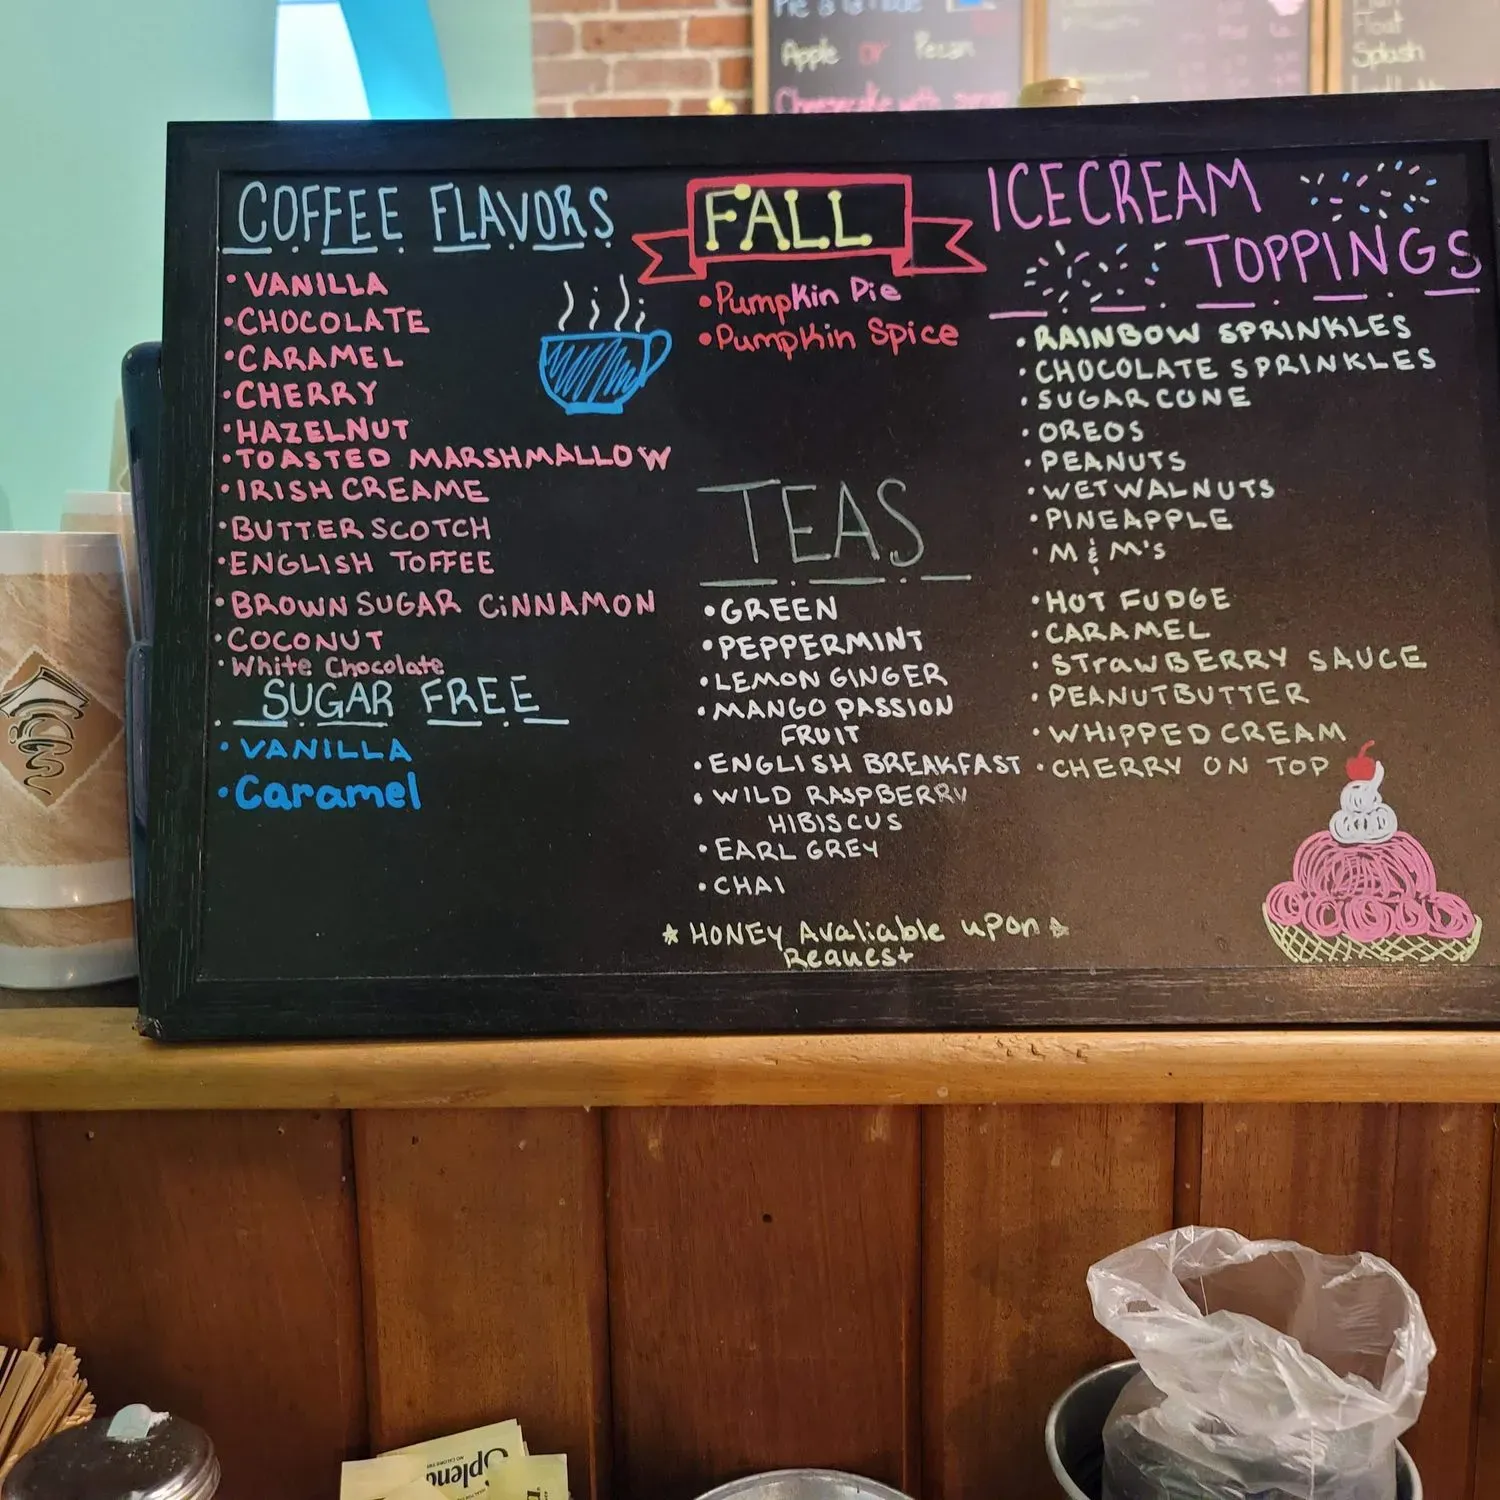 Apple or Pecan
Cheesecake with
Float
Splash
COFFEE FLAVORS
• VANILLA
• CHOCOLATE
• CARAMEL
• CHERRY
• HAZELNUT
• TOASTED MARSHMALLOW
• IRISH CREAME
• BUTTERSCOTCH
• ENGLISH TOFFEE
• BROWN SUGAR CiNNAMON
• COCONUT
• White Chocolate
SUGAR FREE
• VANILLA
• Caramel
FALL
• Pumpkin Pie
• Pumpkin Spice
TEAS
• GREEN
• PEPPERMINT
• LEMON GINGER
• MANGO PASSION
FRUIT
• ENGLISH BREAKFAST
• WILD RASPBERRY
HIBISCUS
• EARL GREY
• CHAI
* HONEY Avaliable upon *
Request
ICECREAM
TOPPINGS
• RAINBOW SPRINKLES
• CHOCOLATE SPRINKLES
• SUGAR CONE
• OREOS
• PEANUTS
• WET WALNUTS
• PINEAPPLE
• M & M's
• HOT FUDGE
• CARAMEL
• STrawBERRY SAUCE
• PEANUTBUTTER
• WHIPPED CREAM
• CHERRY ON TOP
Splenda